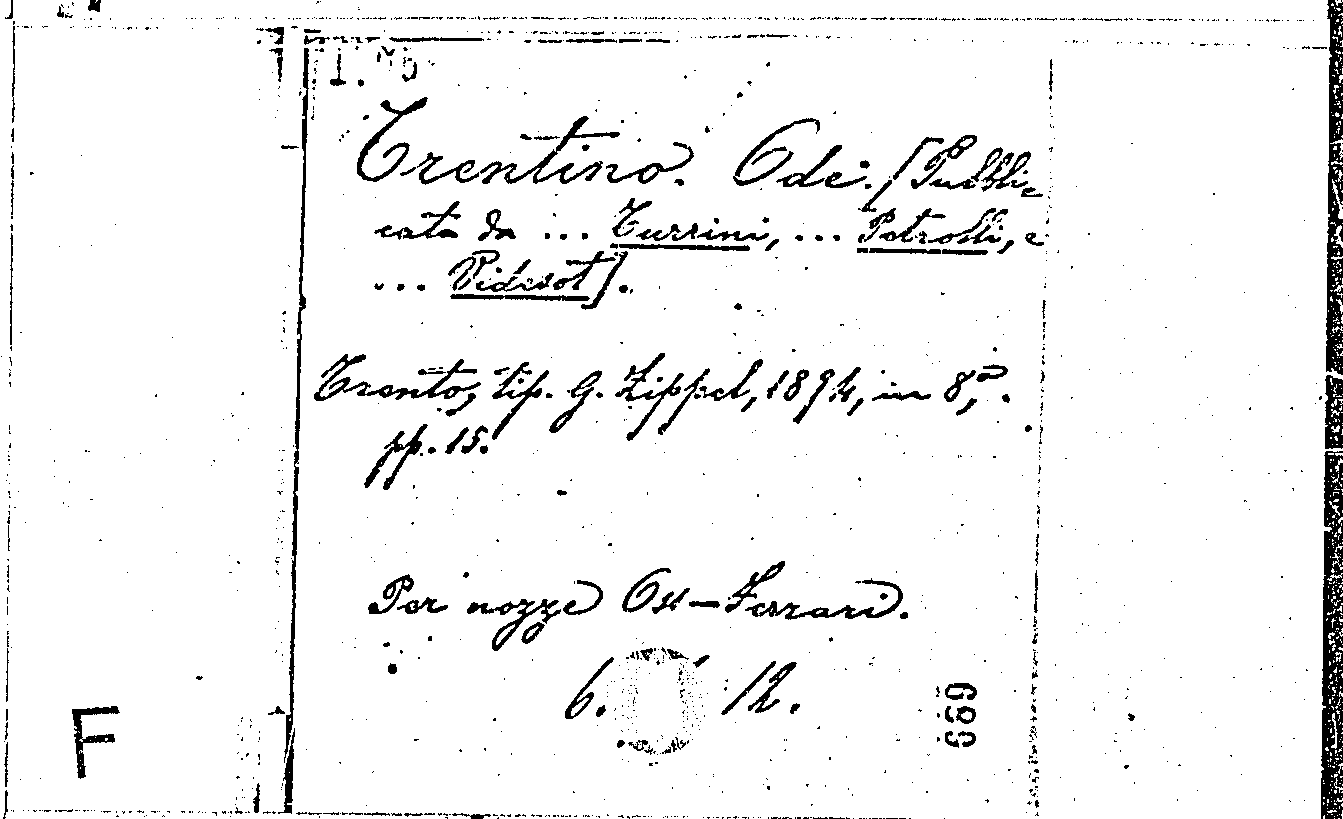 Trentino. Ode. [Pubbli-
cata da ... Turrini, ... Petrolli, e
... Videsot].
Trento, tip. G. Zippel, 1894, in 8,º.
pp. 15.
Per nozze Oss-Ferrari.
6. 12.
689
F